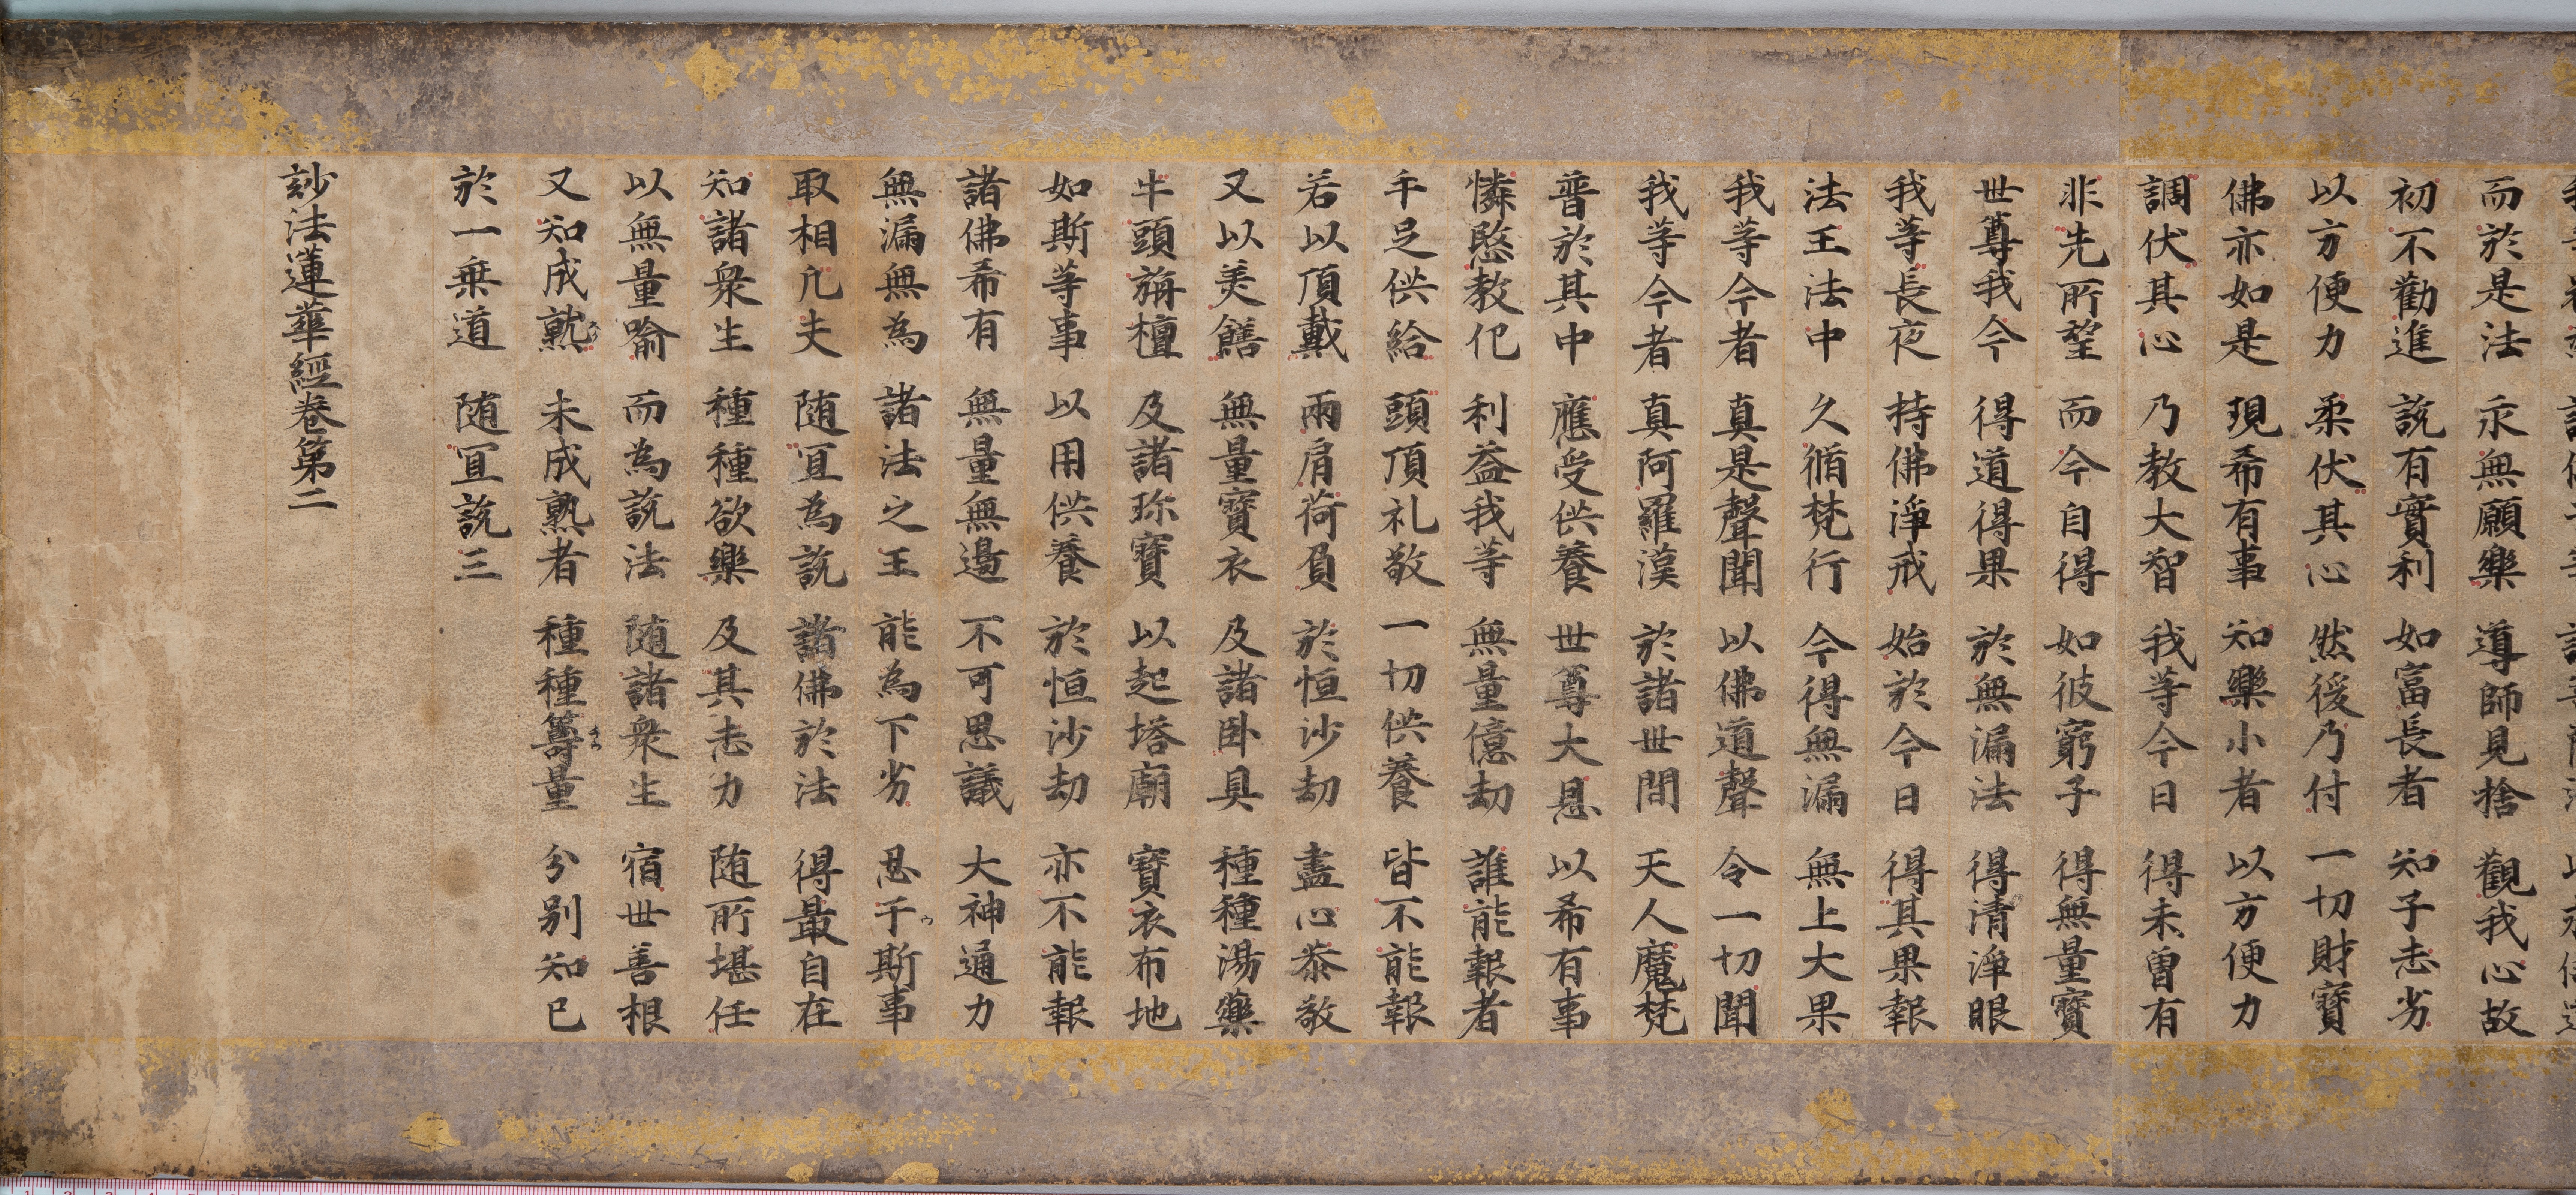 而於是法 永無願樂 導師見捨 觀我心故
初不勸進 說有實利 如富長者 知子志劣
以方便力 柔伏其心 然後乃付 一切財寶
佛亦如是 現希有事 知樂小者 以方便力
調伏其心 乃教大智 我等今日 得未曾有
非先所望 而今自得 如彼窮子 得無量寶
世尊我今 得道得果 於無漏法 得清淨眼
我等長夜 持佛淨戒 始於今日 得其果報
法王法中 久脩梵行 今得無漏 無上大果
我等今者 真是聲聞 以佛道聲 令一切聞
我等今者 真阿羅漢 於諸世間 天人魔梵
普於其中 應受供養 世尊大恩 以希有事
憐愍教化 利益我等 無量億劫 誰能報者
手足供給 頭頂礼敬 一切供養 皆不能報
若以頂戴 兩肩荷負 於恒沙劫 盡心恭敬
又以美饍 無量寶衣 及諸卧具 種種湯藥
牛頭旃檀 及諸珎寶 以起塔廟 寶衣布地
如斯等事 以用供養 於恒沙劫 亦不能報
諸佛希有 無量無邊 不可思議 大神通力
無漏無為 諸法之王 能為下劣 忍于斯事
取相凡夫 随宜為說 諸佛於法 得最自在
知諸衆生 種種欲樂 及其志力 随所堪任
以無量喻 而為說法 随諸衆生 宿世善根
又知成熟 未成熟者 種種籌量 分別知已
於一乗道 随宜說三
妙法蓮華經卷第二